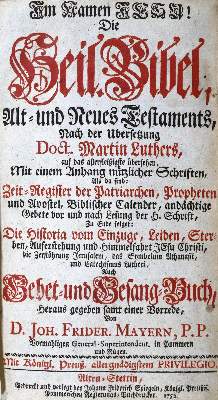 Im Namen JESU!
Die
Heil. Bibel,
Alt- und Neues Testaments,
Nach der Ubersetzung
Doct. Martin Luthers,
auf das allerfleißigste übersehen,
Mit einem Anhang nützlicher Schriften,
Als da sind:
Zeit-Register der Patriarchen, Propheten
und Apostel, Biblischer Calender, andächtige
Gebete vor und nach Lesung der H. Schrift,
Zu Ende folget:
Die Historia vom Einzuge, Leiden, Ster-
ben, Auferstehung und Himmelfahrt JEsu Christi,
die Zerstöhrung Jerusalem, das Symbolum Athanasii,
und Catechismus Lutheri.
Auch
Gebet- und Gesang-Buch,
Heraus gegeben samt einer Vorrede,
Von
D. Joh. Frider. Mayern, P. P.
Vormahligen General-Superintendent. in Pommern
und Rügen.
Mit Königl. Preuß. allergnädigstem PRIVILEGIO.
Alten-Stettin,
Gedruckt und verlegt bey Johann Friderich Spiegeln, Königl. Preußis.
Pommerschen Regierungs-Buchdrucker.